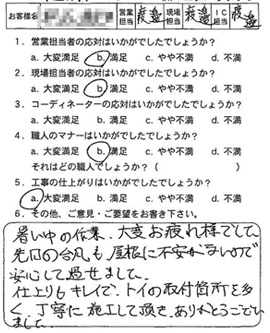 お客様名 営業担当 渡邉 現場担当 渡邉 IC担当 渡邉
1．営業担当者の応対はいかがでしたでしょうか？
a. 大変満足 b. 満足 c. やや不満 d. 不満
2．現場担当者の応対はいかがでしたでしょうか？
a. 大変満足 b. 満足 c. やや不満 d. 不満
3．コーディネーターの応対はいかがでしたでしょうか？
a. 大変満足 b. 満足 c. やや不満 d. 不満
4．職人のマナーはいかがでしたでしょうか？
a. 大変満足 b. 満足 c. やや不満 d. 不満
それはどの職人でしょうか？（ ）
5．工事の仕上がりはいかがでしたでしょうか？
a. 大変満足 b. 満足 c. やや不満 d. 不満
6．その他、ご意見・ご要望をお書き下さい。
暑い中の作業、大変お疲れ様でした
先日の台風も、屋根に不安がないので
安心して過せました。
仕上りもキレイで、トイの取付箇所を多
く、丁寧に施工して頂き、ありがとうござい
ました。